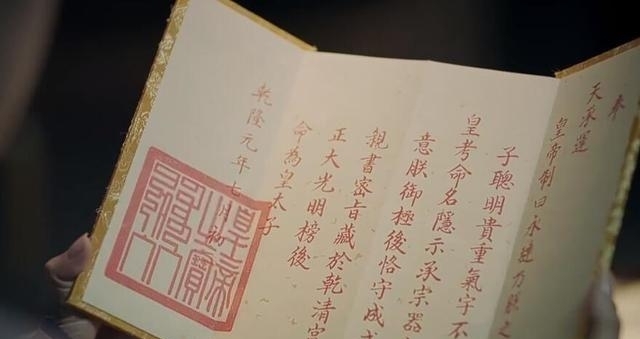 奉
天承運
皇帝制曰永璉乃朕之
子聰明貴重氣宇不
皇考命名隱示承宗器
意朕御極後恪守成
親書密旨藏於乾清宮
正大光明榜後
命為皇太子
乾隆元年七月初